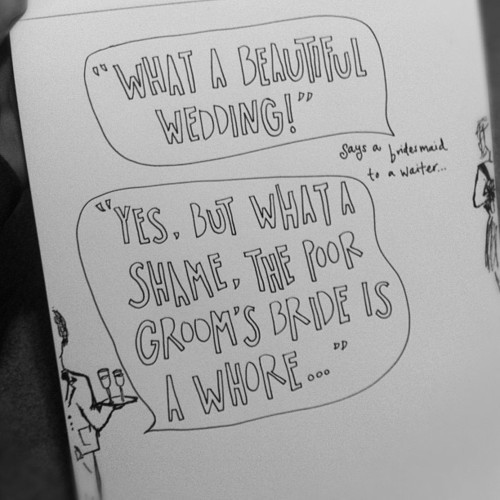 "WHAT A BEAUTIFUL
WEDDING!"
says a bridesmaid
to a waiter...
"YES, BUT WHAT A
SHAME, THE POOR
GROOM'S BRIDE IS
A WHORE..."